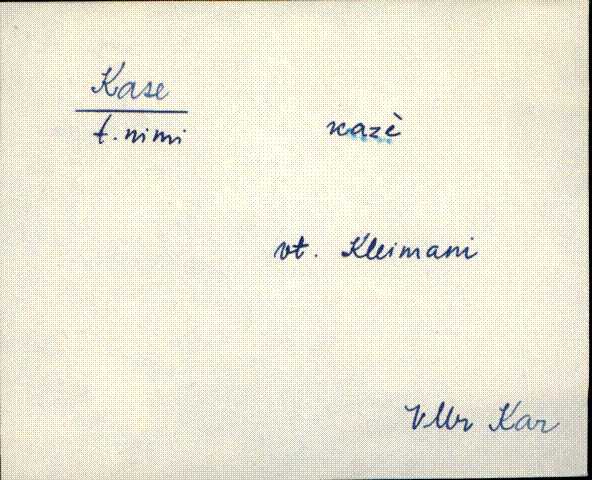 Kase
t. nimi
kazè
vt. Kleimani
VMr Kar